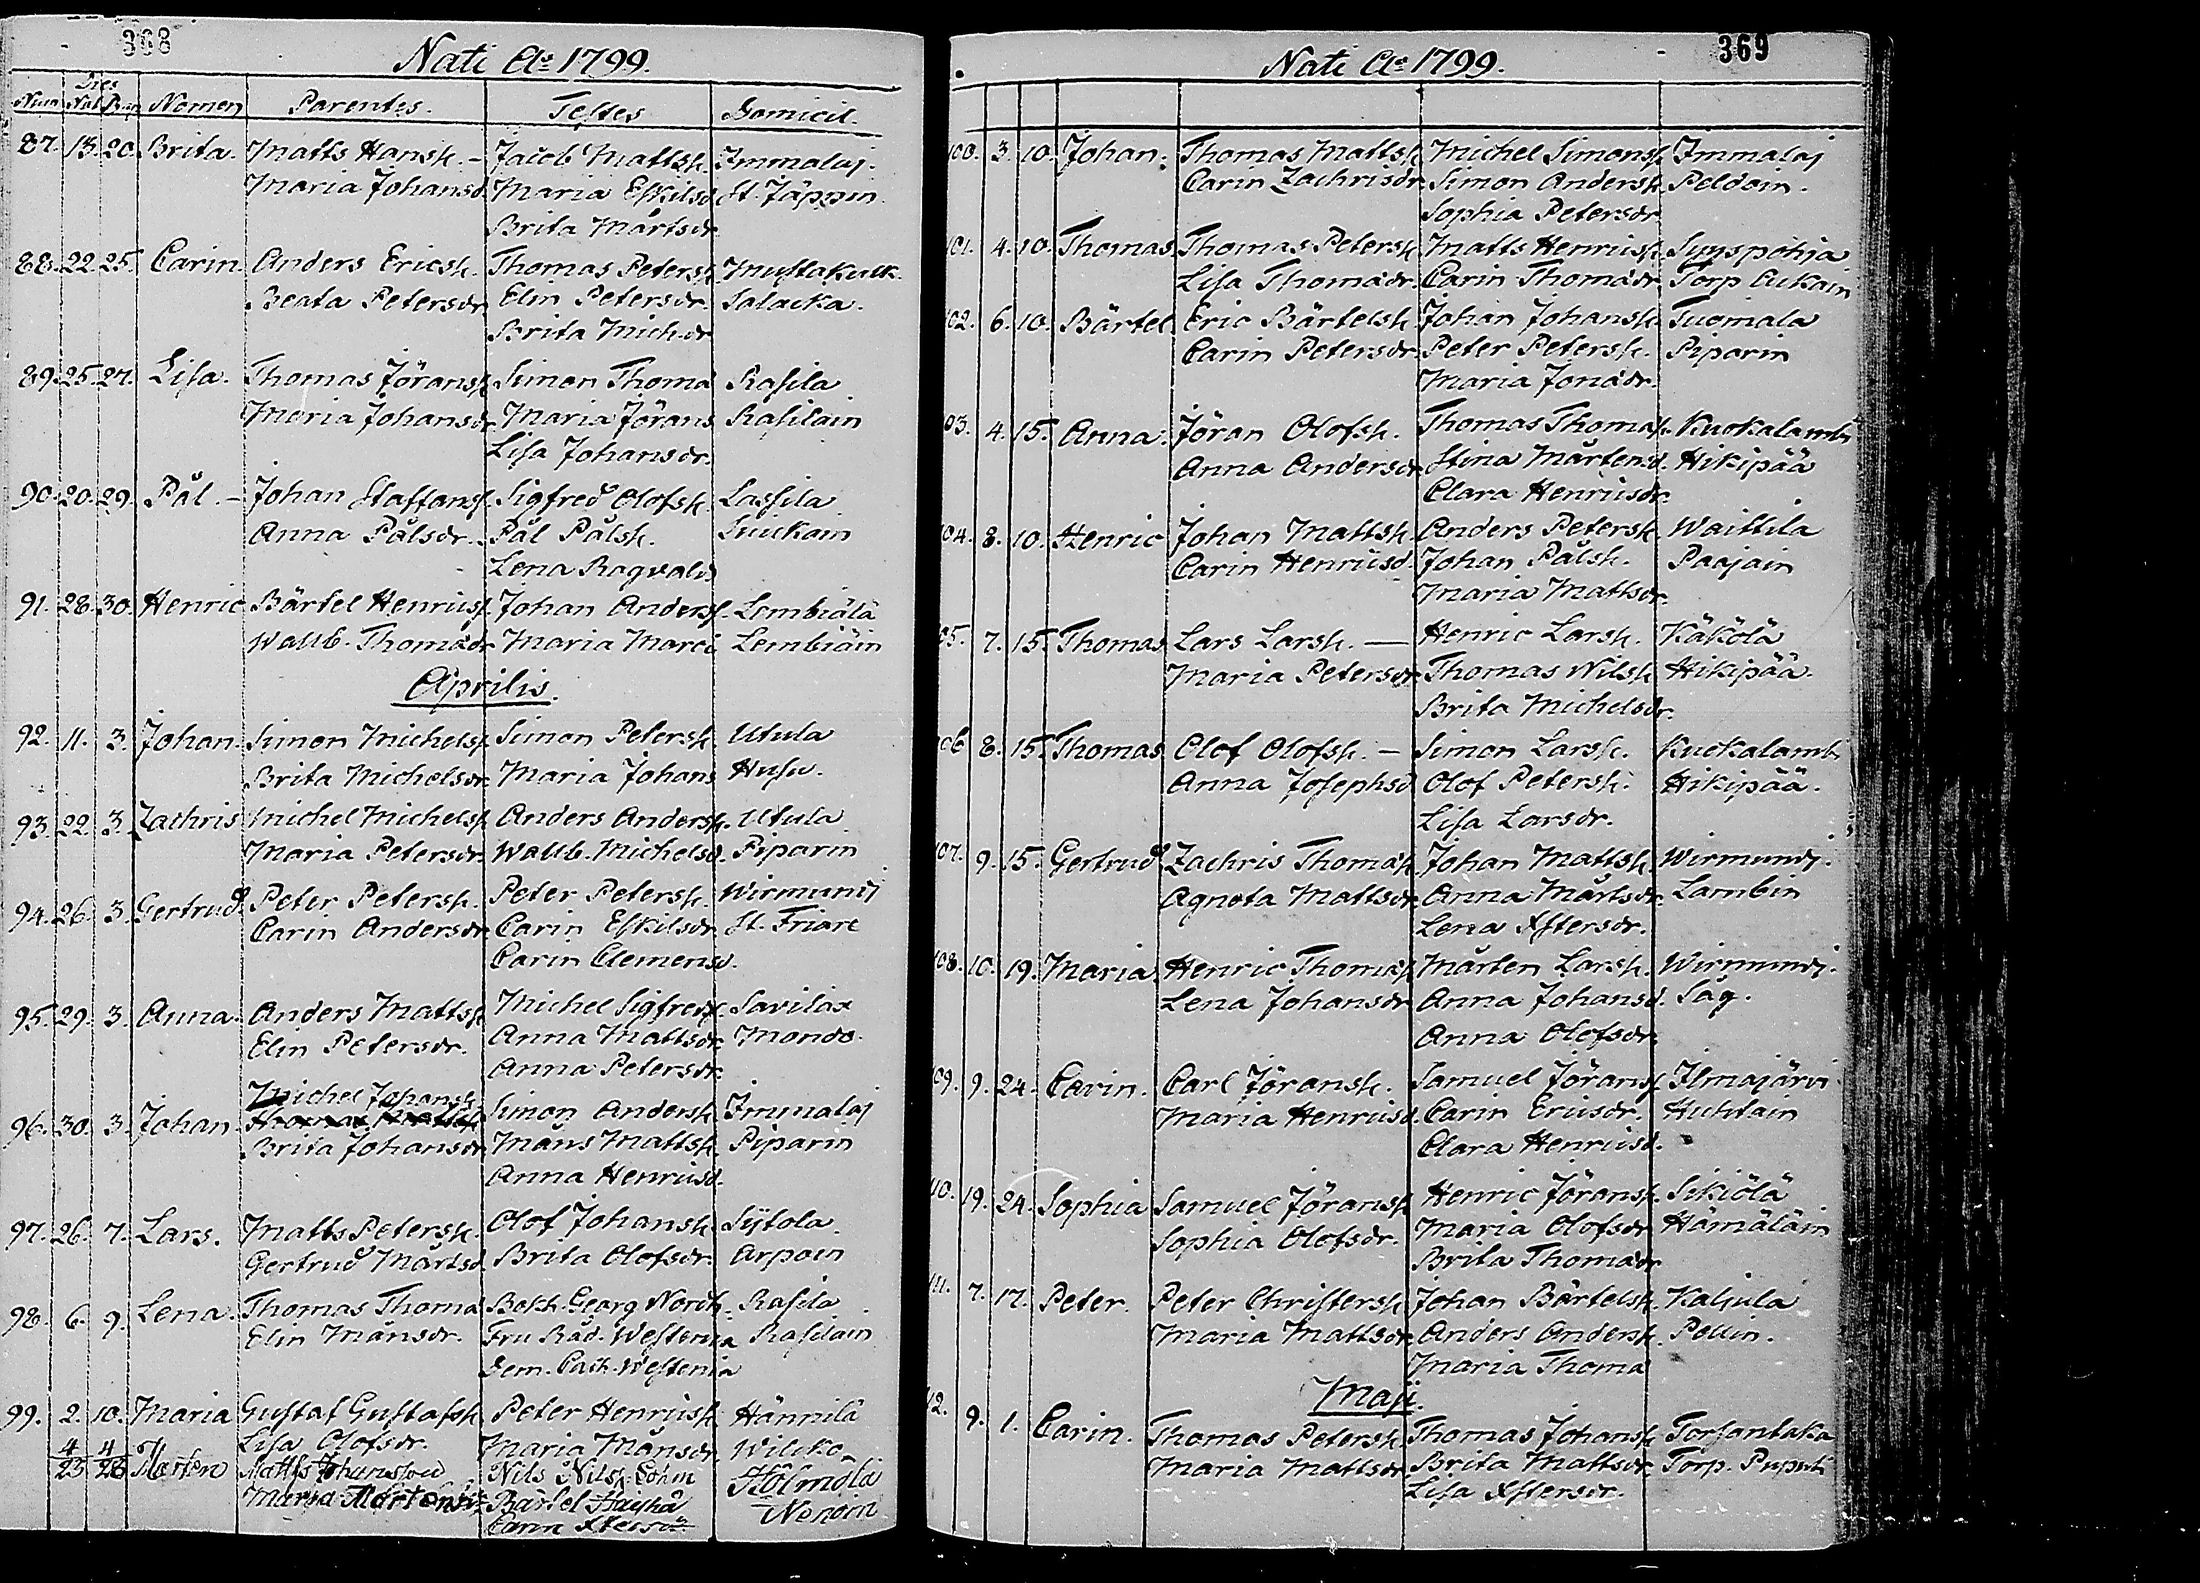 368
Nati Ao 1799.
Dies
Num Nat Bap Nomen Parentes. Testes Domicil.
87. 13. 20. Brita. Matts Hansk. - Jacob Mattsk. Immalaj.
Maria Johansd. Maria Eskilsd. St. Jäppin.
Brita Mårtsdr.
88. 22. 25. Carin. Anders Ericsk. Thomas Petersk. Mustakulk.
Beata Petersdr Elin Petersdr. Salacka.
Brita Mich.dr
89. 25. 27. Lisa. Thomas Jöransk. Simon Thoma Rasila
Maria Johansdr. Maria Jörans Rasilain
Lisa Johansdr.
90. 20. 29. Pål. - Johan Staffansk. Sigfred Olofsk. Lassila
Anna Pålsdr. Pål Pålsk. Suickain
Lena Ragvalds
91. 28. 30. Henric Bärtel Henricsk. Johan Andersk. Lembiälä
Wallb. Thomasdr. Maria Marci Lembiäin
Aprilis.
92. 11. 3. Johan. Simon Michelsk. Simon Petersk. Utula
Brita Michelsdr. Maria Johans Husu.
93. 22. 3. Zachris Michel Michelsk. Anders Andersk. Utula
Maria Petersdr. Wallb. Michelsd. Piparin
94. 26. 3. Gertrud. Peter Petersk. Peter Petersk. Wirmundj
Carin Andersdr. Carin Eskilsdr. St. Friare
Carin Clemensd.
95. 29. 3. Anna. Anders Mattsk. Michel Sigfredsk. Savilax
Elin Petersdr. Anna Mattsdr. Mondo.
Anna Petersdr.
Michel Johansk.
96. 30. 3. Johan Thomas Mattsk. Simon Andersk. Immalaj
Brita Johansdr. Måns Mattsk. Piparin
Anna Henricsd.
97. 26. 7. Lars. Matts Petersk. Olof Johansk. Sÿtola
Gertrud Mårtsd. Brita Olofsdr. Arpain
98. 6. 9. Lena. Thomas Thoma Bokh. Georg Nordh. Rasila
Elin Månsdr. Fru Råd. Westenia Rasilain
Dem. Cath. Westenia
99. 2. 10. Maria Gustaf Gustafsk. Peter Henricsk. Hännilä
Lisa Olofsdr. Maria Månsdr. Wilcko.
4 4
23 28 Mårten Matts Johansson Nils Nilsk. Cohm Holmola
Maria Mårtensdr. Bärtel Nenoin
Carin Xtersdr
369
Nati Ao 1799.
100. 3. 10. Johan. Thomas Mattsk. Michel Simonsk. Immalaj
Carin Zachrisdr. Simon Andersk. Peldoin.
Sophia Petersdr.
101. 4. 10. Thomas. Thomas Petersk. Matts Henricsk. Syyspohja
Lisa Thomadr. Carin Thomadr. Torp Cukain
102. 6. 10. Bärtel Eric Bärtelsk. Johan Johansk. Tuomala
Carin Petersdr. Peter Petersk. Piparin
Maria Jonadr.
103. 4. 15. Anna. Jöran Olofsk. Thomas Thomask. Kuokalambi
Anna Andersdr. Stina Mårtensd. Hikipää
Clara Henricsdr.
104. 8. 10. Henric Johan Mattsk. Anders Petersk. Waittila
Carin Henricsd. Johan Pålsk. Paajain
Maria Mattsdr.
105. 7. 15. Thomas Lars Larsk. — Henric Larsk. Käkölä
Maria Petersdr. Thomas Nilsk. Hikipää.
Brita Michelsdr.
106 8. 15. Thomas Olof Olofsk. - Simon Larsk. Kuokalamb.
Anna Josephsd. Olof Petersk. Hikipää.
Lisa Larsdr.
107. 9. 15. Gertrud Zachris Thomask. Johan Mattsk. Wirmundj.
Agneta Mattsdr. Anna Mårtsdr. Lambin
Lena Xstersdr.
108. 10. 19. Maria. Henric Thomask. Mårten Larsk. Wirmundj.
Lena Johansdr. Anna Johansd. Såg.
Anna Olofsdr.
109. 9. 24. Carin. Carl Jöransk. Samuel Jöransk. Ilmajärvi
Maria Henricsd. Carin Ericsdr. Huhtain
Clara Henricsd.
110. 19. 24. Sophia Samuel Jöransk. Henric Jöransk. Sikiölä
Sophia Olofsdr. Maria Olofsdr. Hämäläin
Brita Thomadr.
111. 7. 17. Peter. Peter Christersk. Johan Bärtelsk. Kaljula
Maria Mattsdr. Anders Andersk. Pollin.
Maria Thoma
Maji.
112. 9. 1. Carin. Thomas Petersk. Thomas Johansk. Torsantaka
Maria Mattsdr. Brita Mattsdr. Torp. Puputi
Lisa Xstersdr.